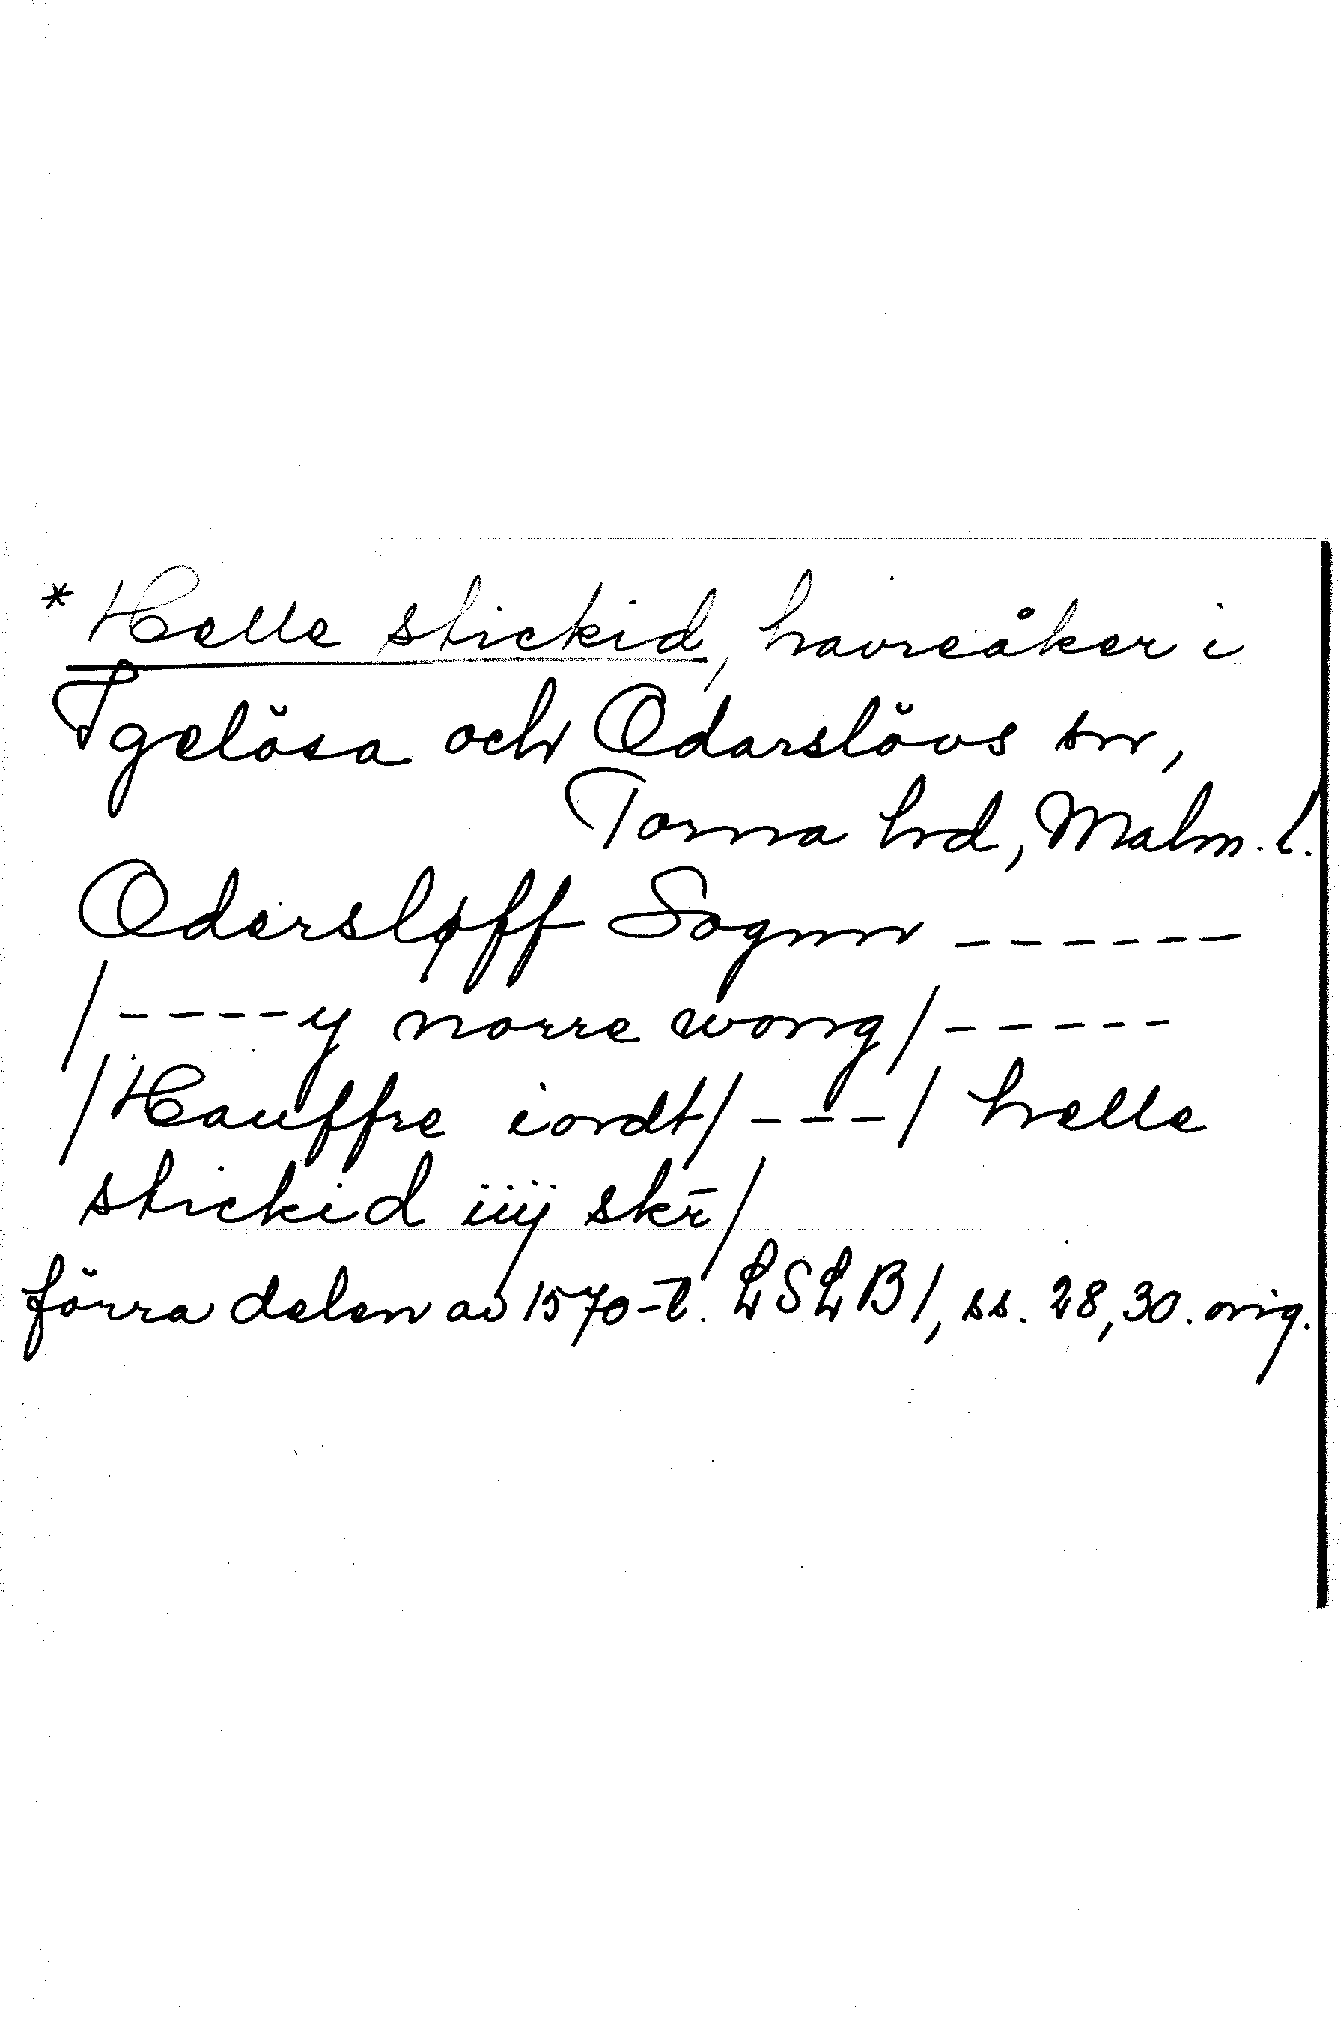 *Helle stickid, havreåker i
Igelösa och Odarslövs sn,
Torna hd, Malm. l.
Odersløff Sognn ------
/----y norre wong/-----
/Hauffre iordt/---/ helle
stickid iiij skr̄/
förra delen av 1570-t. LSLB 1, ss. 28, 30. orig.